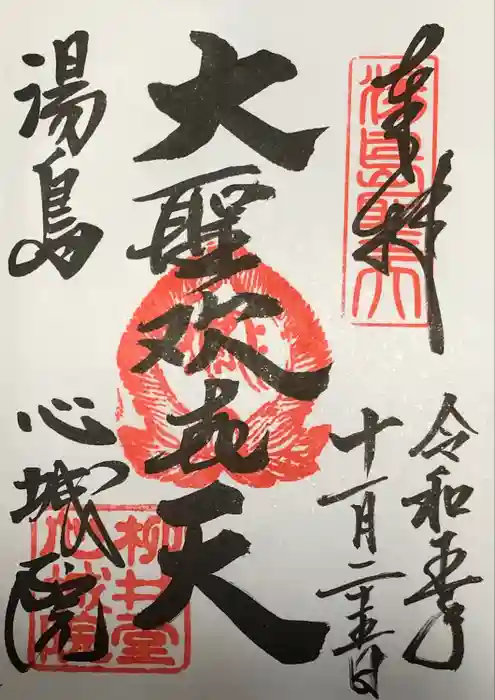 奉拝
令和五年
十一月二十五日
大聖歓喜天
湯島
心城院
湯島聖天
柳井堂
心城院